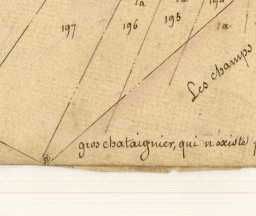 1a
197 196 195 194
1a
Les champs
gros chataignier, qui n'existe